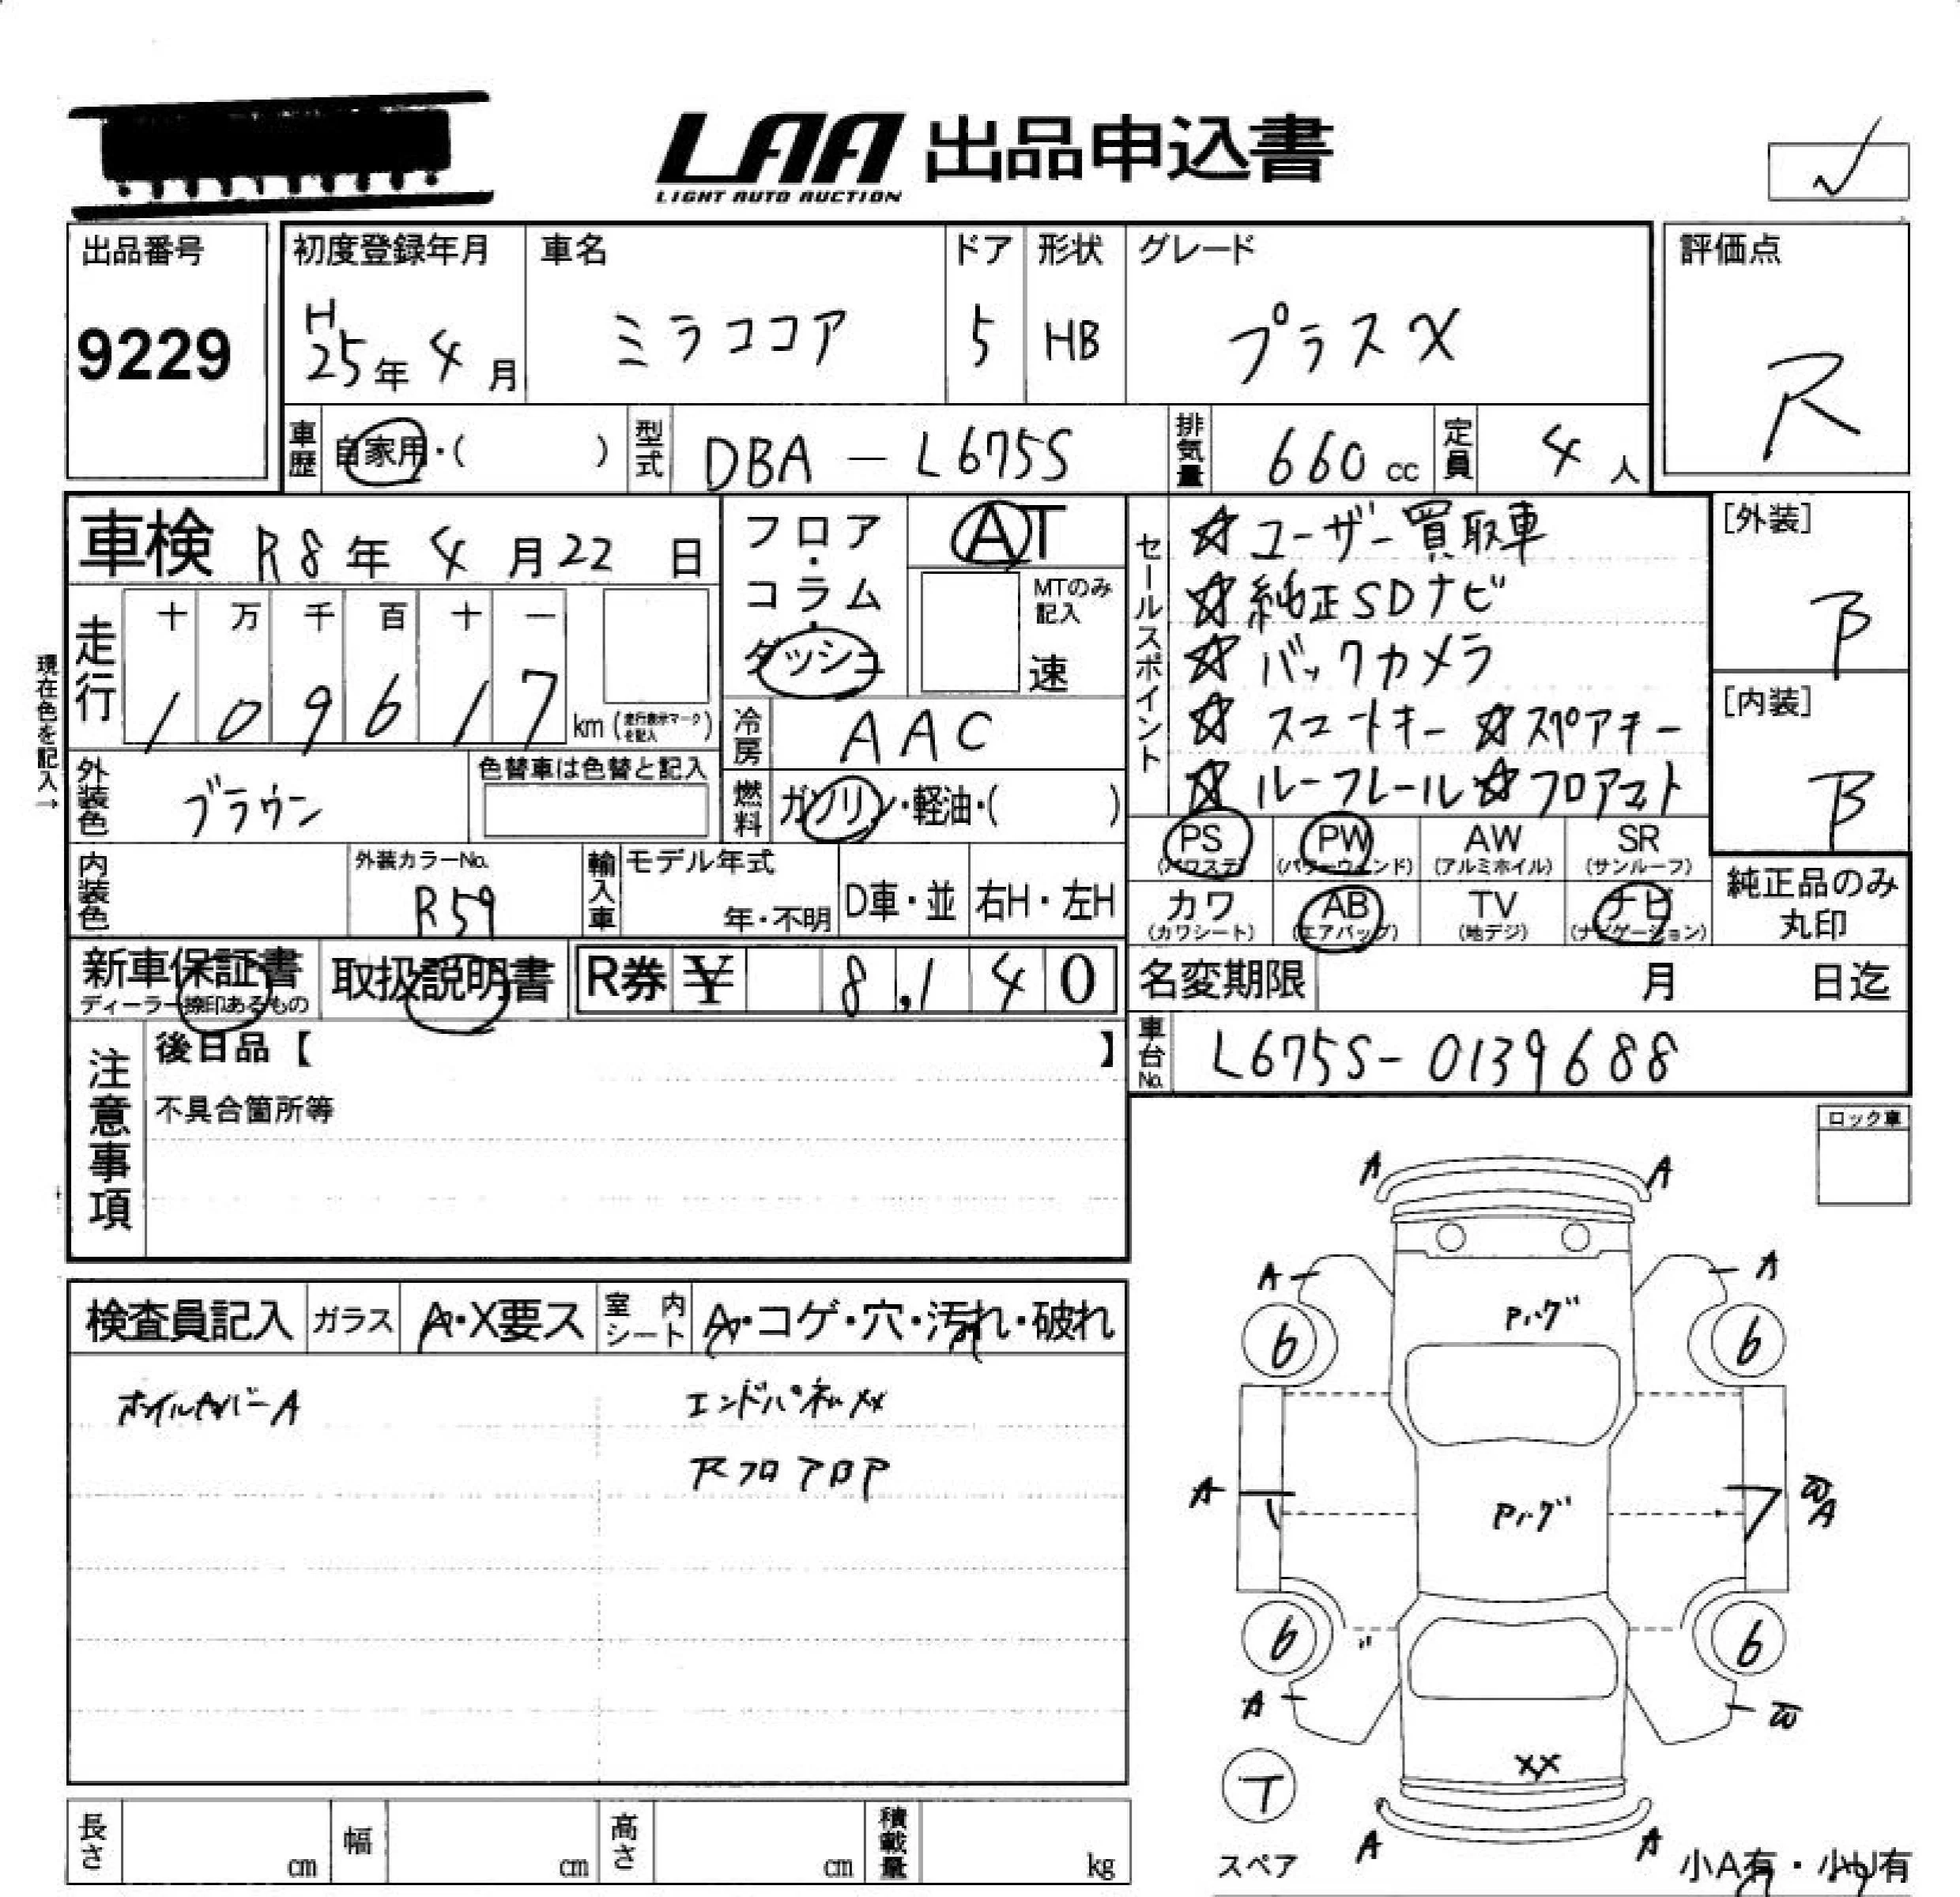 LAA 出品申込書
LIGHT AUTO AUCTION
出品番号
9229
初度登録年月
H
25年 4月
車名
ミラココア
ドア
5
形状
HB
グレード
プラスX
評価点
R
車歴
自家用・( )
型式
DBA - L675S
排気量
660 cc
定員
4 人
車検 R8年 4月22日
フロア・コラム・ダッシュ
AT
MTのみ記入
速
セールスポイント
☆ユーザー買取車
☆純正SDナビ
☆バックカメラ
☆スマートキー ☆スペアキー
☆ルーフレール☆フロアマット
[外装]
B
[内装]
B
現在色を記入→
走行
十 万 千 百 十 一
1 0 9 6 1 7 km (走行表示マークを記入)
冷房
AAC
外装色
ブラウン
色替車は色替と記入
燃料
ガソリン・軽油・( )
内装色
外装カラーNo.
R59
輸入車
モデル年式
年・不明
D車・並
右H・左H
PS (パワステ)
PW (パワーウィンド)
AW (アルミホイル)
SR (サンルーフ)
カワ (カワシート)
AB (エアバッグ)
TV (地デジ)
ナビ (ナビゲーション)
純正品のみ
丸印
新車保証書
ディーラー捺印あるもの
取扱説明書
R券 ¥ 8,140
名変期限 月 日迄
車台No.
L675S-0139688
注意事項
後日品【 】
不具合箇所等
ロック車
検査員記入
ガラス
A・X要ス
室内シート
A・コゲ・穴・汚れ・破れ
ホイルカバーA
エンドパネルXX
RフロアBP
A A
A A
Pハゲ
6 6
A
Pハゲ
W
A
6 6
A W
XX
T
スペア
A A
小A有・小U有
長さ cm
幅 cm
高さ cm
積載量 kg